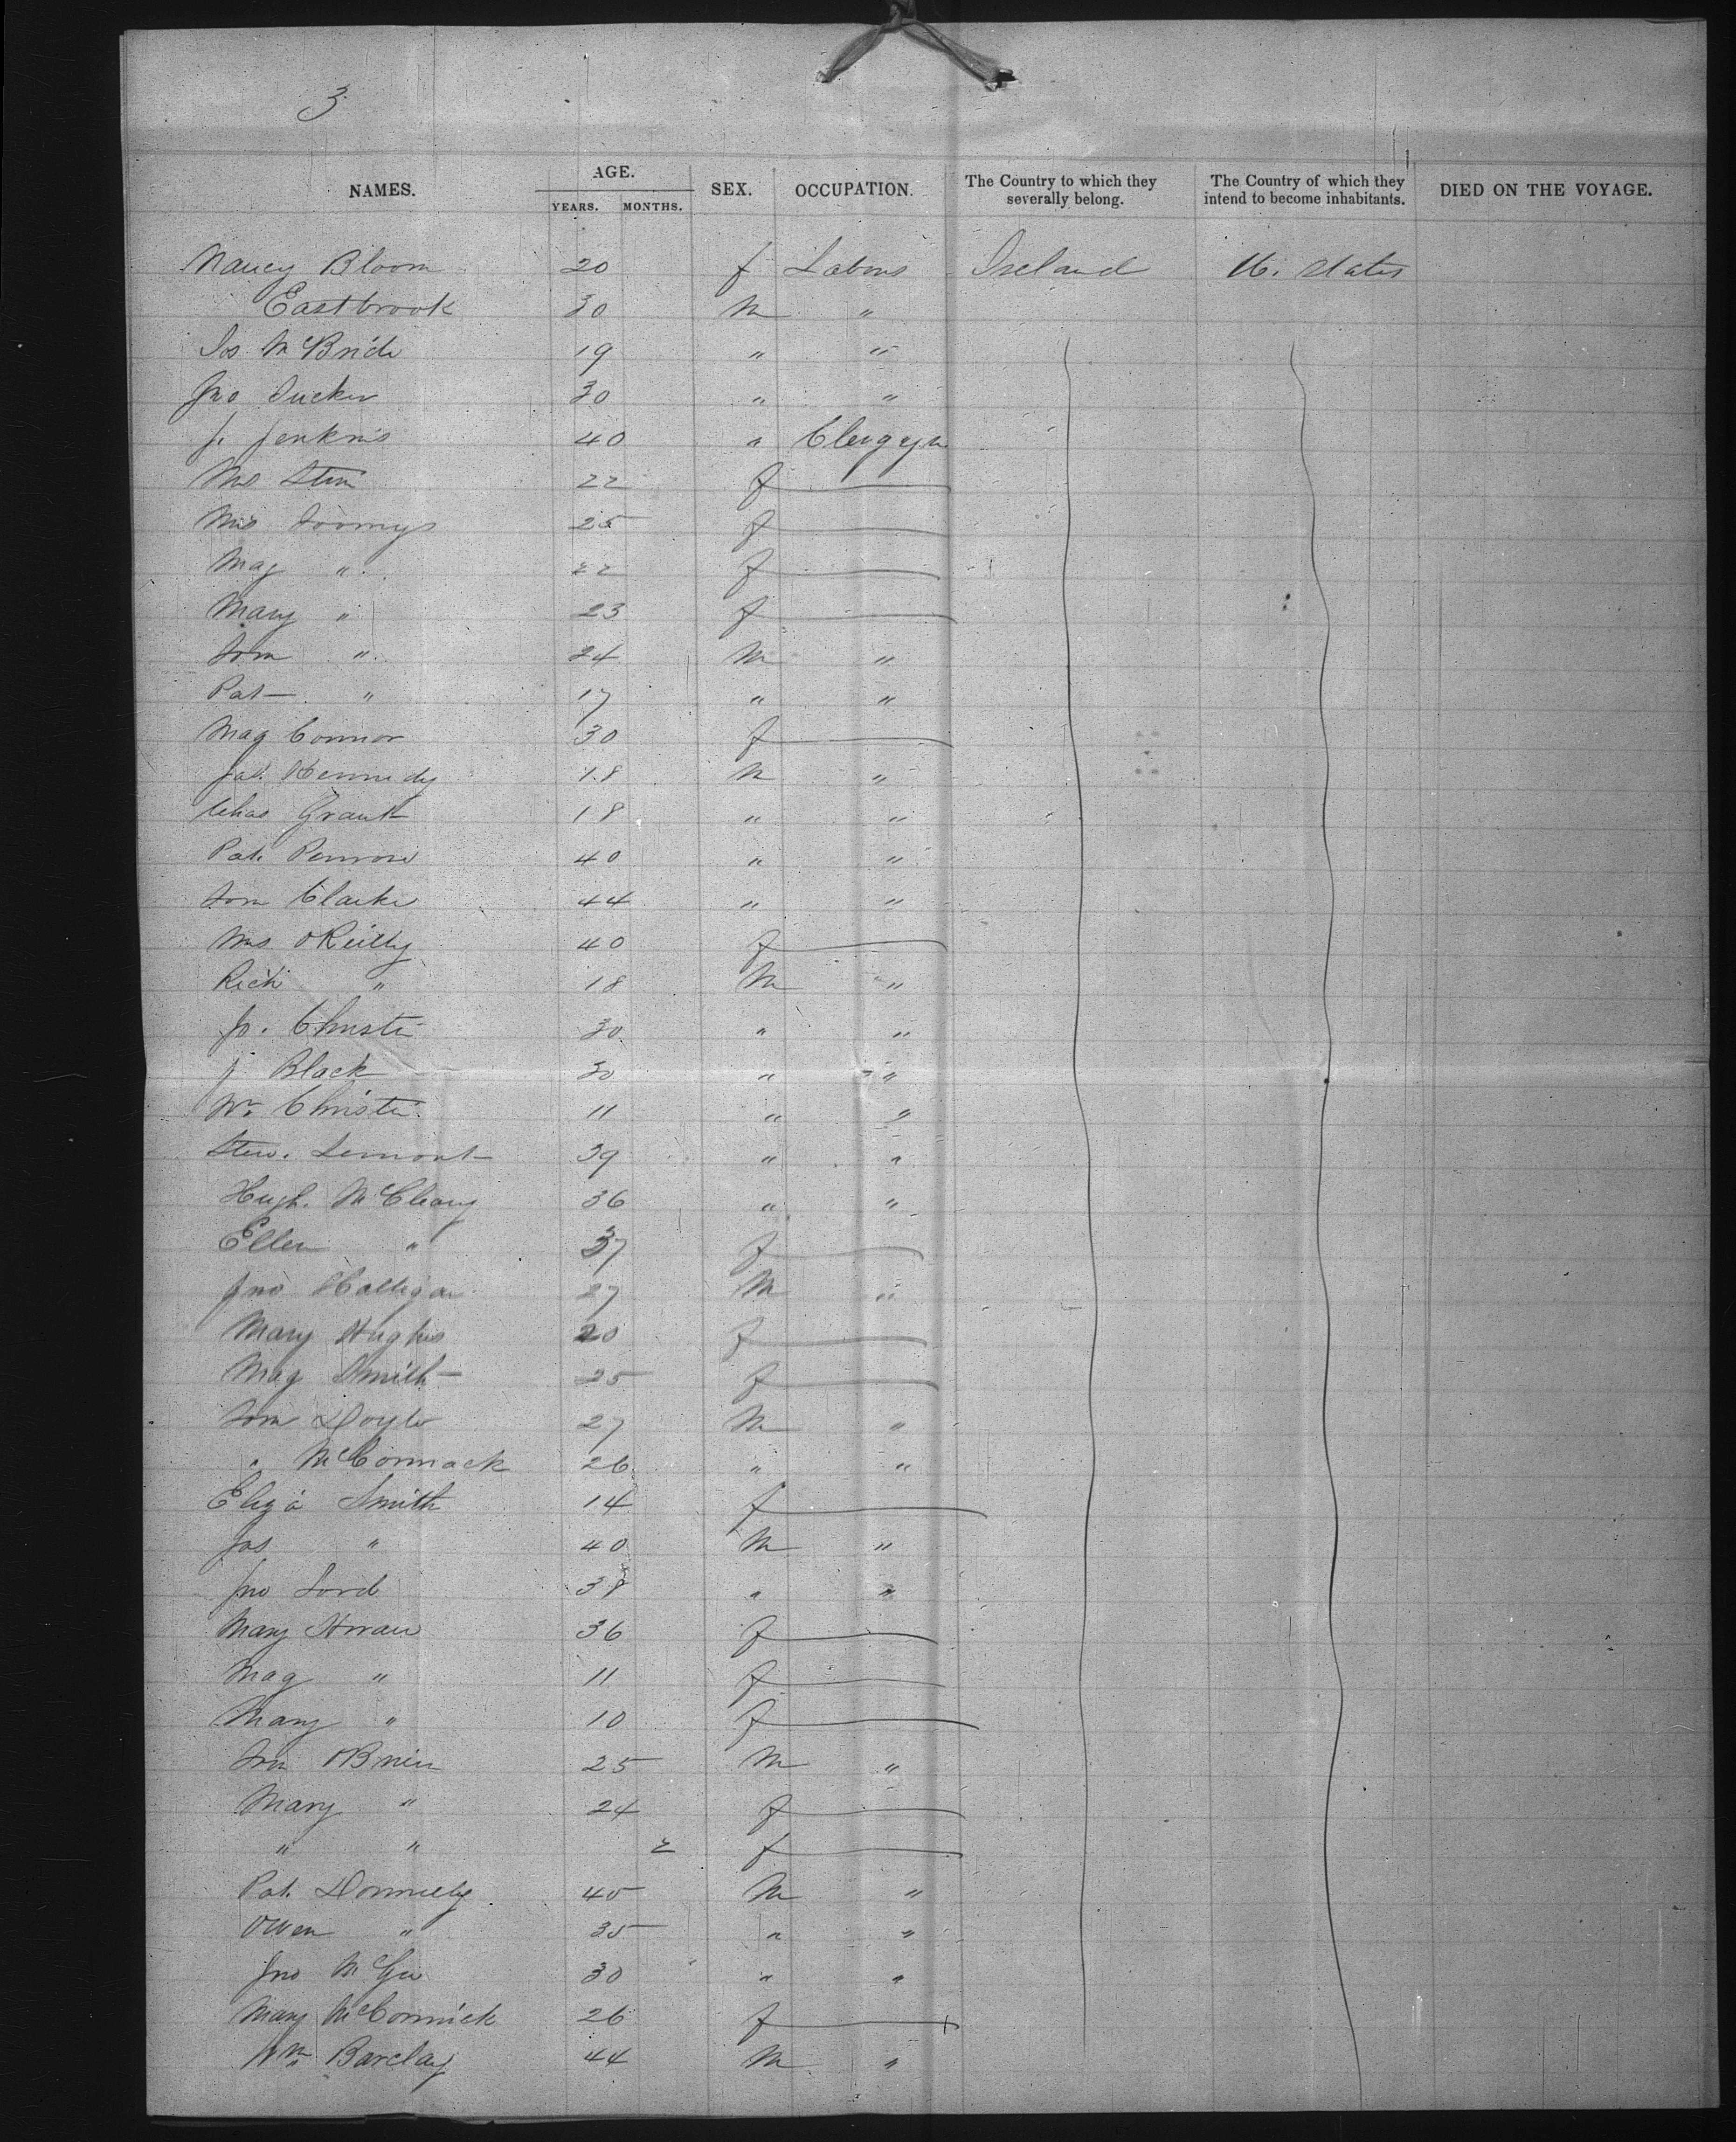 3
NAMES. AGE. YEARS. MONTHS. SEX. OCCUPATION. The Country to which they severally belong. The Country of which they intend to become inhabitants. DIED ON THE VOYAGE.
Nancy Bloom 20 f Labour Ireland U. States
Eastbrook 30 M "
Jos McBride 19 " "
Jno Tucker 30 " "
J. Jenkins 40 " Clergym
22 f
Mrs Toomys 25 f
Mag " 22 f
Mary " 23 f
Tom " 24 M "
Pat " 17 " "
Mag Connor 30 f
Jas. Kennedy 18 M "
Chas Grant 18 " "
Pat. Penrose 40 " "
Tom Clarke 44 " "
Mrs OReilly 40 f
Rich " 18 M "
Jo. Christi 30 " "
J Black 30 " "
Wm Christi 11 " "
Stew. Lemont 39 " "
Hugh. McCleary 36 " "
Ellen " 37 f
Jno Halligan 27 M "
Mary Hughes 20 f
Mag Smith 25 f
Tom Doyle 27 M "
" McCormack 26 " "
Eliza Smith 14 f
Jas " 40 M "
Jno Lord 38 " "
Mary 36 f
Mag " 11 f
Mary " 10 f
Tom OBrien 25 M "
Mary " 24 f
" " 2 f
Pat. Donnelly 45 M "
Owen " 35 " "
Jno McGee 30 " "
Mary McCormick 26 f
Wm Barclay 44 M "